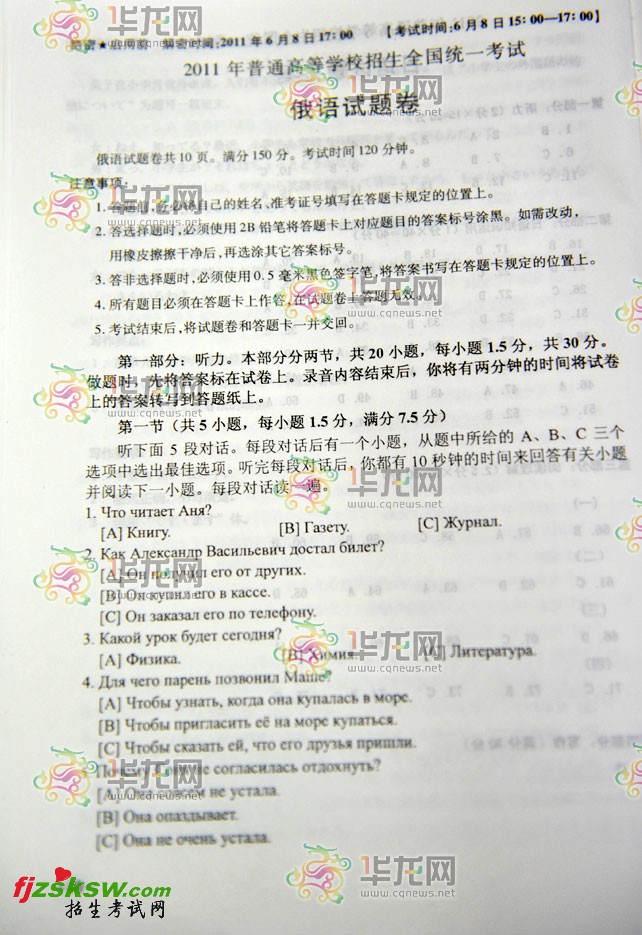 启用前 解密时间:2011年6月8日17:00 【考试时间:6月8日15:00—17:00】
2011年普通高等学校招生全国统一考试
俄语试题卷
俄语试题卷共10页。满分150分。考试时间120分钟。
注意事项:
1.答题前,务必将自己的姓名、准考证号填写在答题卡规定的位置上。
2.答选择题时,必须使用2B铅笔将答题卡上对应题目的答案标号涂黑。如需改动,
用橡皮擦擦干净后,再选涂其它答案标号。
3.答非选择题时,必须使用0.5毫米黑色签字笔,将答案书写在答题卡规定的位置上。
4.所有题目必须在答题卡上作答,在试题卷上答题无效。
5.考试结束后,将试题卷和答题卡一并交回。
第一部分:听力。本部分分两节,共20小题,每小题1.5分,共30分。
做题时,先将答案标在试卷上。录音内容结束后,你将有两分钟的时间将试卷
上的答案转写到答题纸上。
第一节(共5小题,每小题1.5分,满分7.5分)
听下面5段对话。每段对话后有一个小题,从题中所给的A、B、C三个
选项中选出最佳选项。听完每段对话后,你都有10秒钟的时间来回答有关小题
并阅读下一小题。每段对话读一遍。
1. Что читает Аня?
[A] Книгу. [B] Газету. [C] Журнал.
2. Как Александр Васильевич достал билет?
[A] Он получил его от других.
[B] Он купил его в кассе.
[C] Он заказал его по телефону.
3. Какой урок будет сегодня?
[A] Физика. [B] Химия. [C] Литература.
4. Для чего парень позвонил Маше?
[A] Чтобы узнать, когда она купалась в море.
[B] Чтобы пригласить её на море купаться.
[C] Чтобы сказать ей, что его друзья пришли.
5. Почему согласилась отдохнуть?
[A] Она совсем не устала.
[B] Она опаздывает.
[C] Она не очень устала.
华龙网
www.cqnews.net
fjzsksw.com
招生考试网